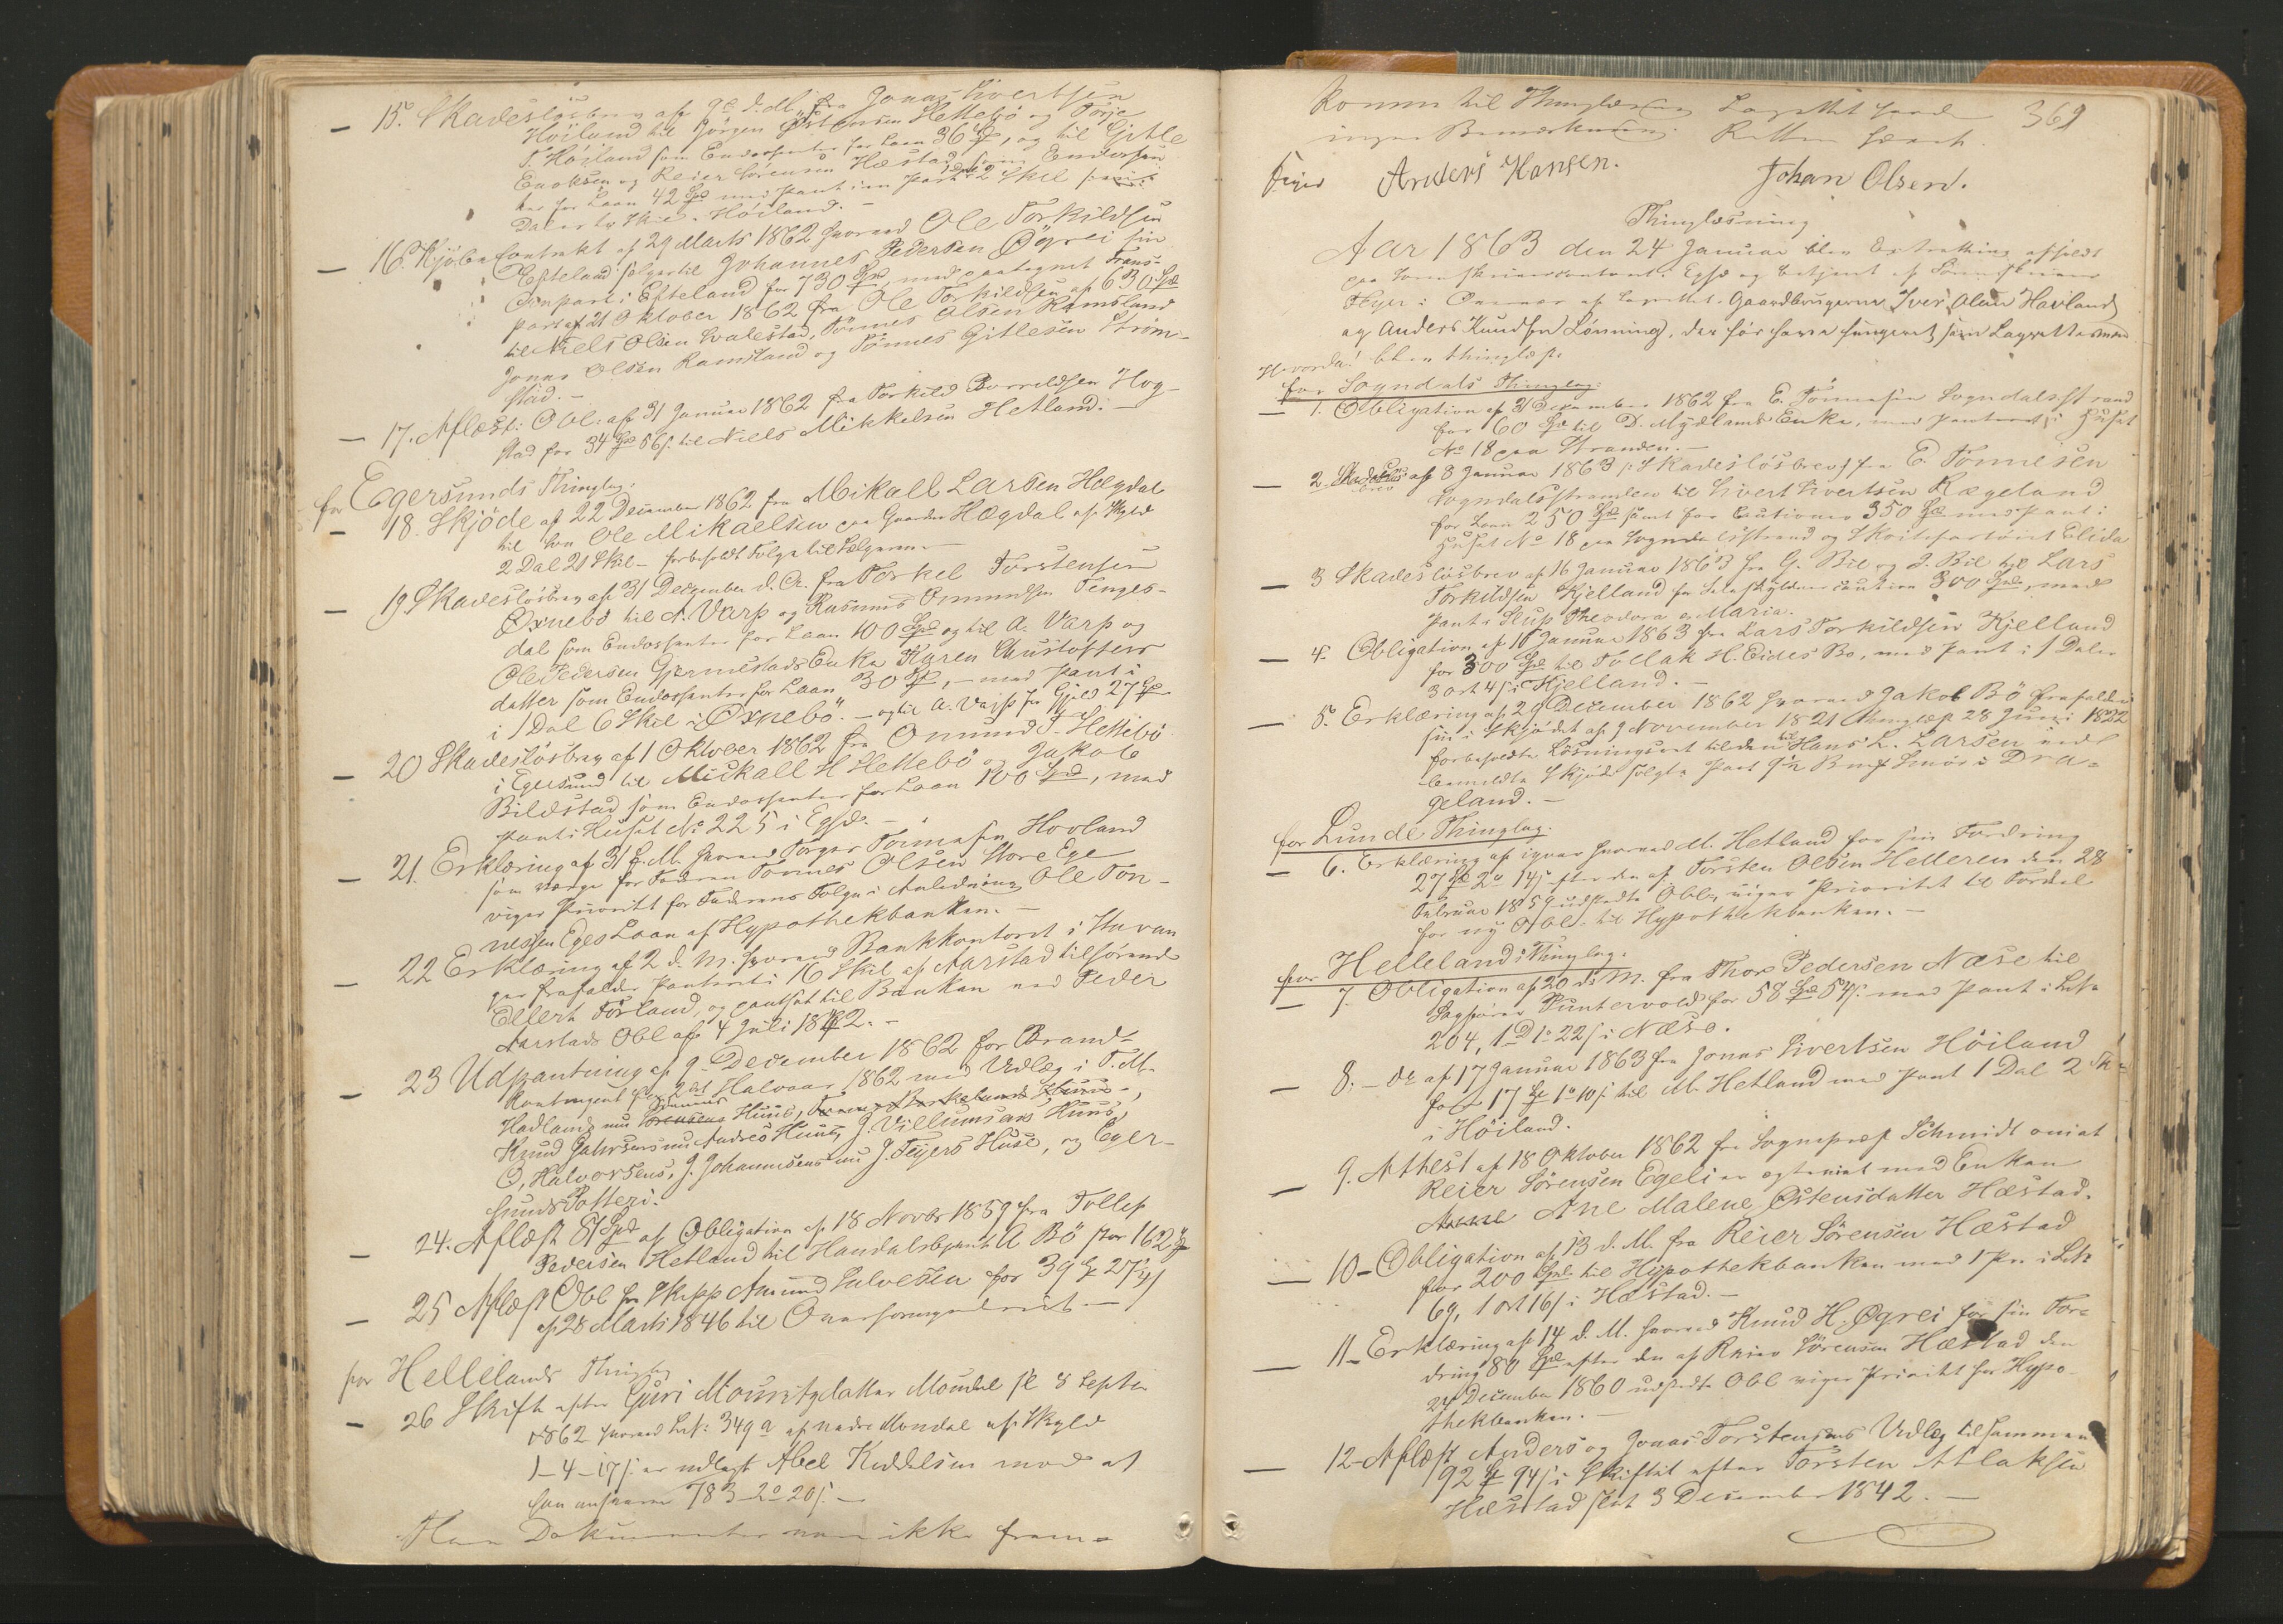 — 15. Skadeslösbrev af 9de d. M. fra Jonas Sivertsen
Höiland til Jörgen Østensen Hettebö og Torje
T. Höiland som Endossenter for Laan 36 Spd, og til Gitle
Enoksen og Reier Sörensen Hæstad som Endossen
ter for Laan 42 Spd med Pant i en Part 1 Dal 2 Skil
Höiland. —
— 16. Kjöbecontrakt af 29 Marts 1862 hvorved Ole Torkildsen
Efteland sælger til Johannes Pedersen Øgrei sin
Enpart i Efteland for 730 Spd, med paategnet Trans-
port af 21 Oktober 1862 fra Ole Torkildsen af 630 Spd
til Niels Olsen Svalestad, Tönnes Olsen Ramsland
Jonas Olsen Ramsland og Tönnes Gitlesen Ström-
stad. —
— 17. Aflæst: Obl: af 31 Januar 1862 fra Torkild Torkildsen Hog-
stad for 34 Spd 56 s. til Niels Mikkelsen Hetland. —
for Egersunds Thinglag:
— 18. Skjöde af 22 December 1862 fra Mikall Larsen Hægdal
til Sön Ole Mikaelsen paa Gaarden Hægdal af Skyld
2 Dal 21 Skil — forbeholdt Folge til Sælgeren. —
— 19 Skadeslösbrev af 31 December d. A. fra Torkel Torstensen
Øxnebö til A. Varp og Rasmus Omundsen Tenges-
dal som Endossenter for Laan 100 Spd og til A. Varp og
Ole Pedersen Gjermestads Enke Karen Christoffers
datter som Endossenter for Laan 30 Spd, — med Pant i
i 1 Dal 6 Skil i Øxnebö. — og til A. Varp for Gjeld 27 Spd
— 20 Skadeslösbrev af 1 Oktober 1862 fra Omund T. Hettebö
i Egersund til Mickall H Hettebö og Jakob
Bilestad som Endossenter for Laan 100 Spd, med
Pant i Huset No 225 i Egsd. —
— 21. Erklæring af 31 f. M. hvorved Torger Tönnesen Hovland
som Værge for Faderen Tönnes Olsen Store Ege
viger Prioritet for Faderens Folge i Anledning Ole Tön-
nessen Eges Laan af Hypothekbanken. —
— 22 Erklæring af 2 d. M. hvorved Bankkontoret i Stavan
ger frafalder Panteret i 16 Skil af Aarstad tilhörende
Ellert Törland, og pantsat til Banken ved Peder
Aarstads Obl af 4 Juli 1842. —
— 23 Udpantning af 9 December 1862 for Brand-
Kontingent for 2det Halvaar 1862 med Udlæg i T. M.
Hadlands nu Huus,
Knud Gahrsens nu Andres Huus, J. Villumsens Huus,
O, Halvorsens, J. Johannesens nu J. Feyers Huse, og Eger-
sunds Potteri.
— 24. Aflæst 81 Spd af Obligation af 18 Novbr 1859 fra Tollef
Pedersen Hetland til Handelsbtjent A Bö stor 162 Spd
— 25 Aflæst Obl fra Skipp Amund Salvesen for 39 Spd 27 s
af 28 Marts 1846 til Overformynderiet —
for Hellelands Thinglag
— 26 Skifte efter Guri Mouritzdatter Mondal sl 8 Septbr
1862 hvorved Lnr: 349 a af nedre Mondal af Skyld
1–4–17 s. er udlagt Abel Kieddelsen mod at
han ansvarer 783–2–20 s. —
Flere Dokumenter var ikke frem-
369
komne til Thinglæsning Lagrettet havde
ingen Bemerkning. Retten hævet.
Feyer Anders Hansen. Johan Olsen.
Thinglæsning
Aar 1863 den 24 Januar blev Extrathing afholdt
paa Sorenskriverkontoret i Egsd og betjent af Sorenskriver
Feyer i Overvær af Lagrettet. Gaardbrugerne Iver Olsen Havland
og Anders Knudsen Lönning, der för have fungeret som Lagrettesmænd
Hvorda blev thinglæst:
for Sogndals Thinglag:
— 1. Obligation af 31 December 1862 fra E. Tönnesen Sogndalsstrand
for 60 Spd til D. Mydlands Enke, med Panteret i Huset
No 18 paa Stranden. —
— 2. Skadeslösbrev af 8 Januar 1863 (Skadeslösbrev) fra E. Tönnesen
Sogndalsstranden til Sivert Sivertsen Rægeland
for Laan 250 Spd samt for Cautioner 350 Spd med Pant i
Huset No 18 paa Sogndalsstrand og Skoitefartöiet Elida
— 3 Skadeslösbrev af 16 Januar 1863 fra G. Bie og J. Bie til Lars
Torkildsen Kjelland for Selvskyldnercaution 300 Spd, med
Pant i Slup Theodora Maria.
— 4. Obligation af 16 Januar 1863 fra Lars Torkildsen Kjelland
for 300 Spd til Tollak H. Eides Bo, med Pant i 1 Daler
3 ort 4 s i Kjelland. —
— 5. Erklæring af 29 December 1862 hvorved Jakob Bö frafalder
sin i Skjödet af 9 November 1821 thinglæst 28 Juni 1822
forbeholdte Lösningsret til den til Hans L. Larsen ved
bemeldte Skjöde solgte Part 9 1/2 Bmk Smör i Dra-
geland. —
for Lunde Thinglag:
— 6. Erklæring af igaar hvorved M. Hetland for sin Fordring
27 Spd 2 o 14 s efter den af Torsten Olsen Helleren den 28
Februar 1859 udstedte Obl. viger Prioritet til Fordel
for ny Obl. til Hypothekbanken. —
for Hellelands Thinglag:
— 7. Obligation af 20 d. M. fra Thore Pedersen Næse til
Sagförer Puntervold for 58 Spd 54 s. med Pant i Lnr
204, 1 D 1 o 22 s i Næse.
— 8. — do af 17 Januar 1863 fra Jonas Sivertsen Höiland
for 17 Spd 1 o 10 s. til M. Hetland med Pant 1 Dal 2 Sk
i Höiland.
— 9. Athest af 18 Oktober 1862 fra Sognepræst Schmidt om at
Reier Sörensen Egeli er egteviet med Enken
Ane Malene Østensdatter Hæstad.
— 10 - Obligation af 13 d. M. fra Reier Sörensen Hæstad
for 200 Spd til Hypothekbanken med 1 Pr. i Lnr
69, 1 ort 16 s i Hæstad. —
— 11 - Erklæring af 14 d. M. hvorved Knud H. Øgrei for sin For-
dring 80 Spd efter den af Reier Sörensen Hæstad den
24 December 1860 udstedte Obl viger Prioritet for Hypo-
thekbanken. —
— 12 - Aflæst Anders og Jonas Torstensens Udlæg tilsammen
92 Spd 94 s i Skiftet efter Torsten Atlaksen
Hæstad slut 3 December 1842. —